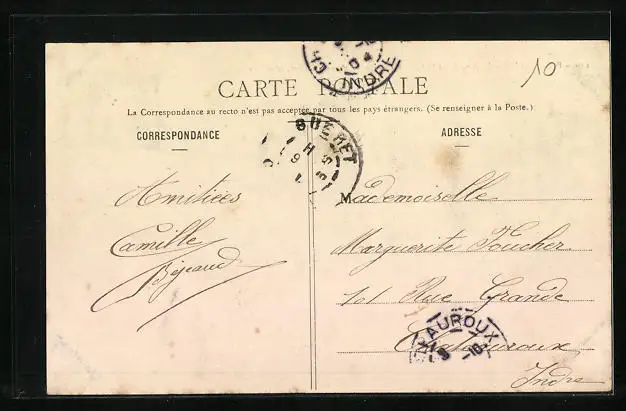 INDRE
CARTE POSTALE
10
La Correspondance au recto n'est pas acceptée par tous les pays étrangers. (Se renseigner à la Poste.)
CORRESPONDANCE
ADRESSE
GUÉRET
Amitiées
Camille
Mademoiselle
Marguerite Foucher
101 Rue Grande
Chateauroux
Indre